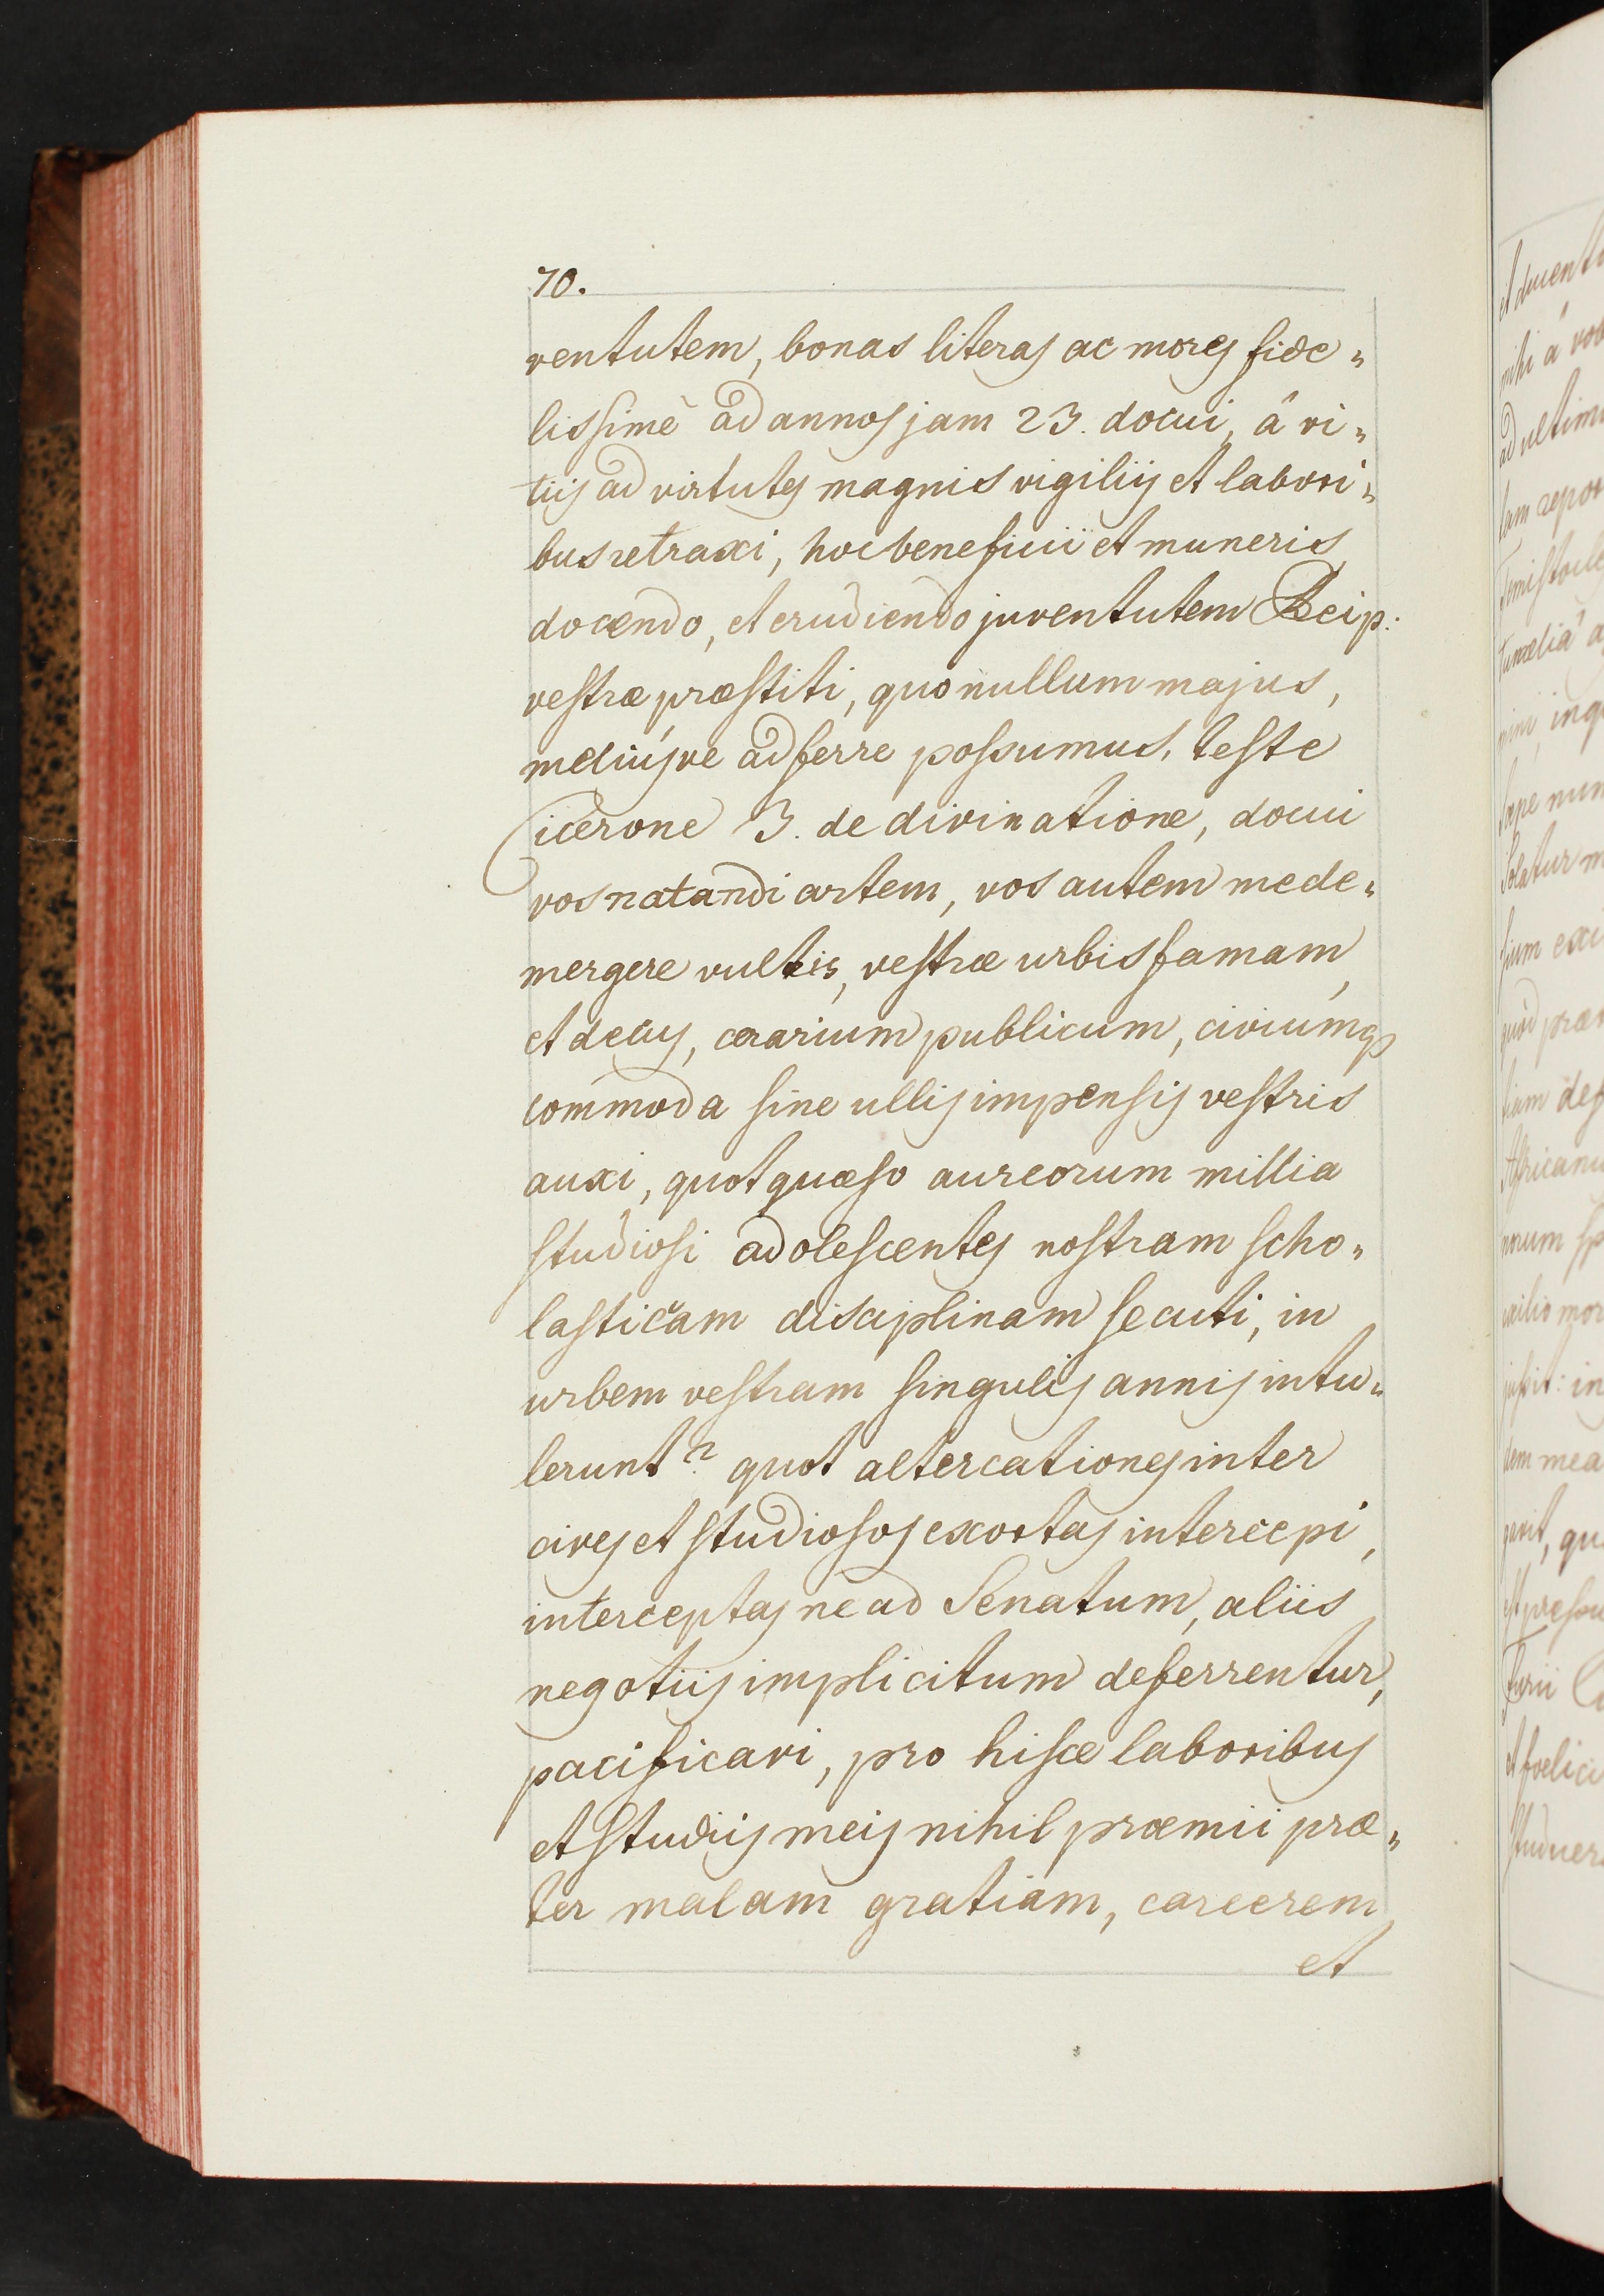 70.
ventutem, bonas literas ac mores fide„
lissimè ad annos jam 23. docui, â vi„
tiis ad virtutes magnis vigiliis et labori„
bus retraxi, hoc beneficii et muneris
docendo, et erudiendo juventutem Reip:
vestræ præstiti, quo nullum majus,
meliúsve adferre possumus. teste
Cicerone 3. de divinatione, docui
vos natandi artem, vos autem me de„
mergere vultis, vestræ urbis famam,
et decus, ærarium publicum, civiúmq꜄
commoda sine ullis impensis vestris
auxi, quot quæso aureorum millia
studiosi adolescentes nostram scho„
lasticam disciplinam secuti, in
urbem vestram singulis annis intu„
lerunt? quot altercationes inter
cives et studiosos exortas intercepi,
interceptas ne ad Senatum, aliis
negotiis implicitum deferrentur,
pacificavi, pro hisce laboribus
et studiis meis nihil præmii præ„
ter malam gratiam, carcerem
et